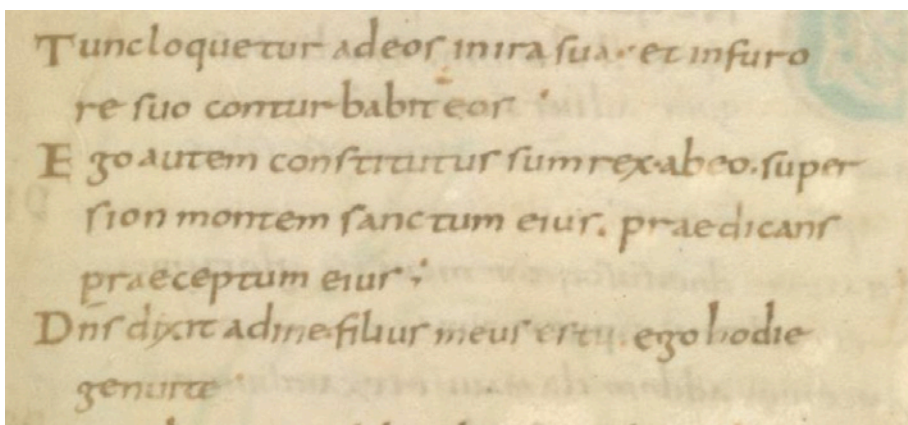 Tunc loquetur ad eos in ira sua· et infuro
re suo conturbabit eos
Ego autem constitutus sum rex· ab eo· super
sion montem sanctum eius. praedicans
praeceptum eius
Dn̄s dixit ad me· filius meus es tu· ego hodie
genui te